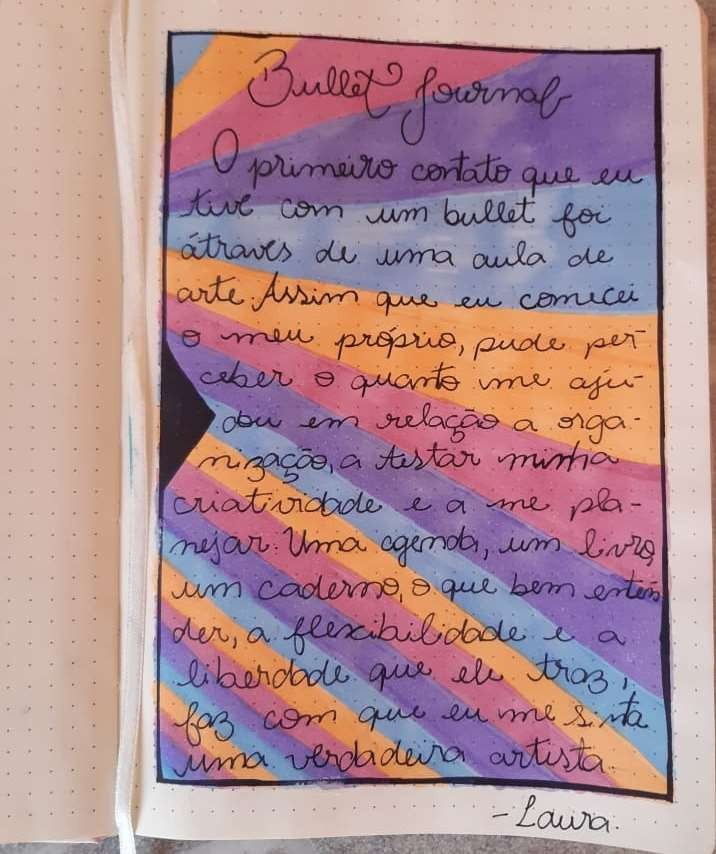 Bullet Journal
O primeiro contato que eu
tive com um bullet foi
através de uma aula de
arte. Assim que eu comecei
o meu próprio, pude per-
ceber o quanto me aju-
dou em relação a orga-
nização, a testar minha
criatividade e a me pla-
nejar. Uma agenda, um livro,
um caderno, o que bem enten
der, a flexibilidade e a
liberdade que ele traz,
faz com que eu me sinta
uma verdadeira artista.
-Laura.